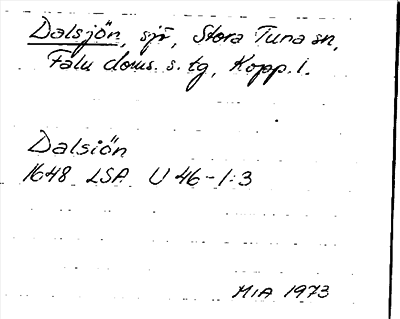 Dalsjön, sjö, Stora Tuna sn,
Falu doms. s. tg, Kopp. l.
Dalsiön
1648 LSA U 46-1:3
MIA 1973